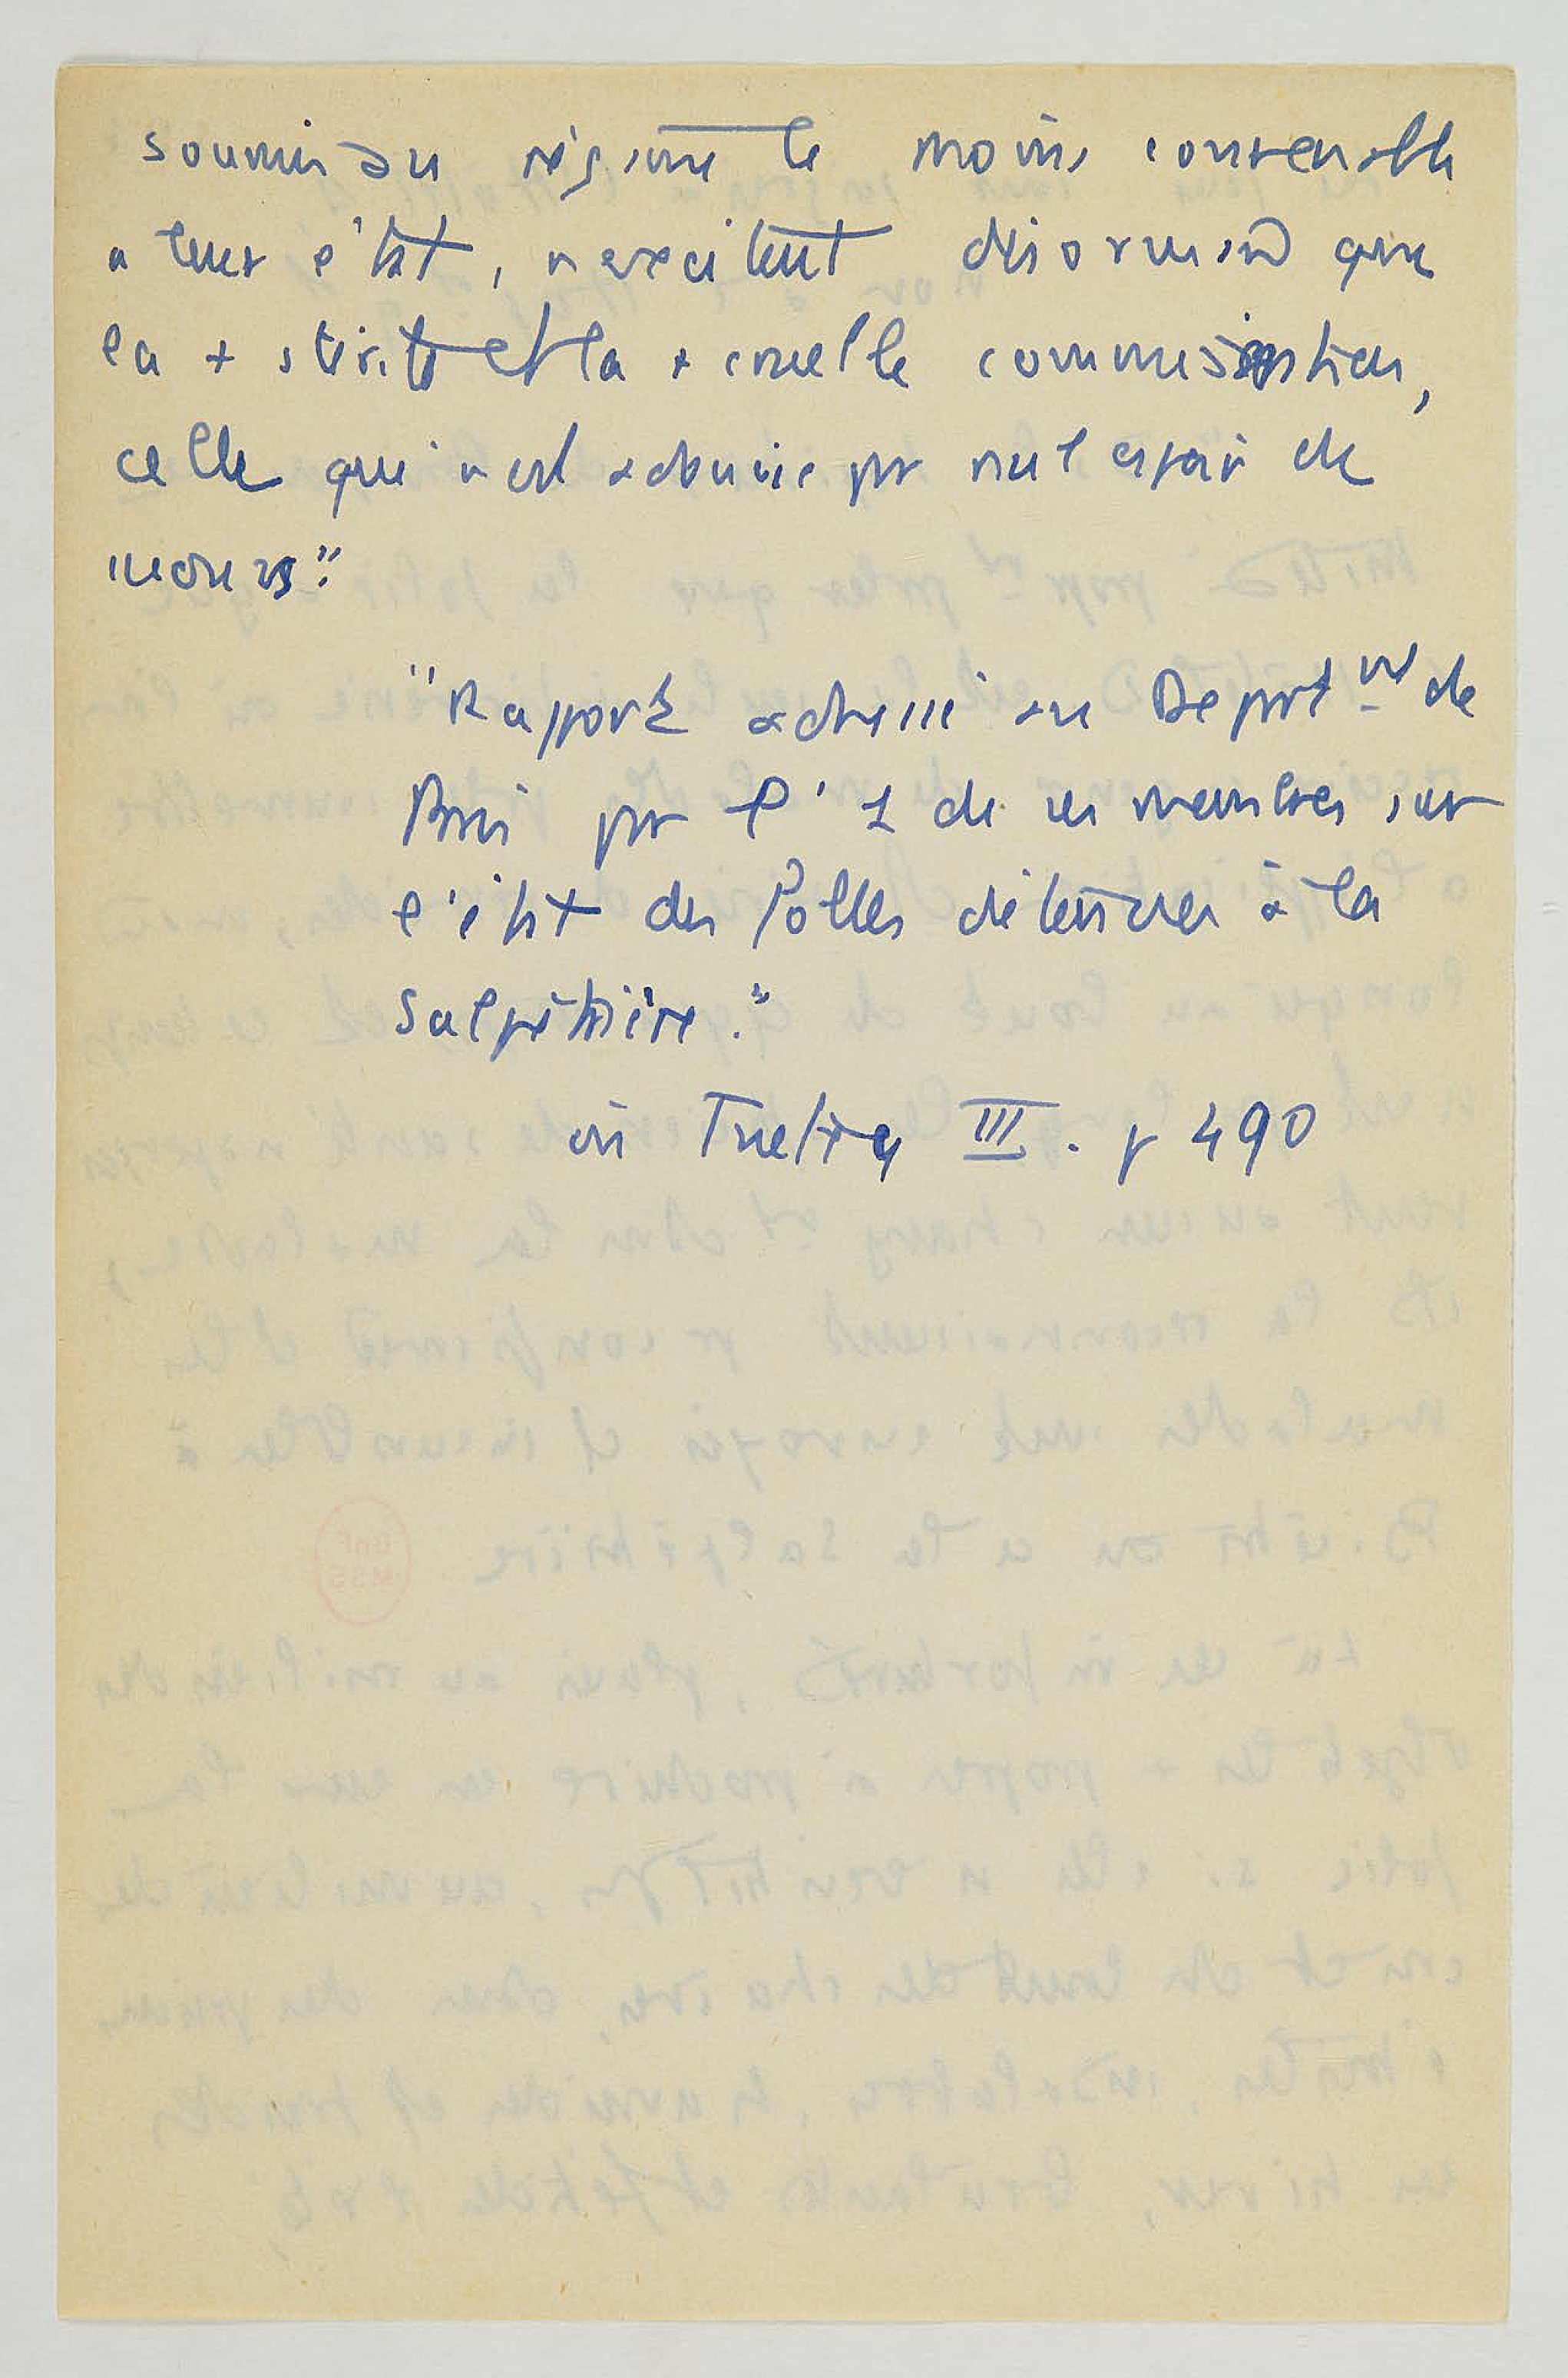 soumis au régime le moins convenable
a leur état, n'excitent désormais que
la + stérile et la + cruelle commisération,
celle qui n'est adoucie pr nul espoir de
secours."
"Rapport adressé au Departmt de
Paris pr l' 1 de ses membres sur
l'état des folles détenues à la
Salpêtrière."
in Tuetey III. p 490